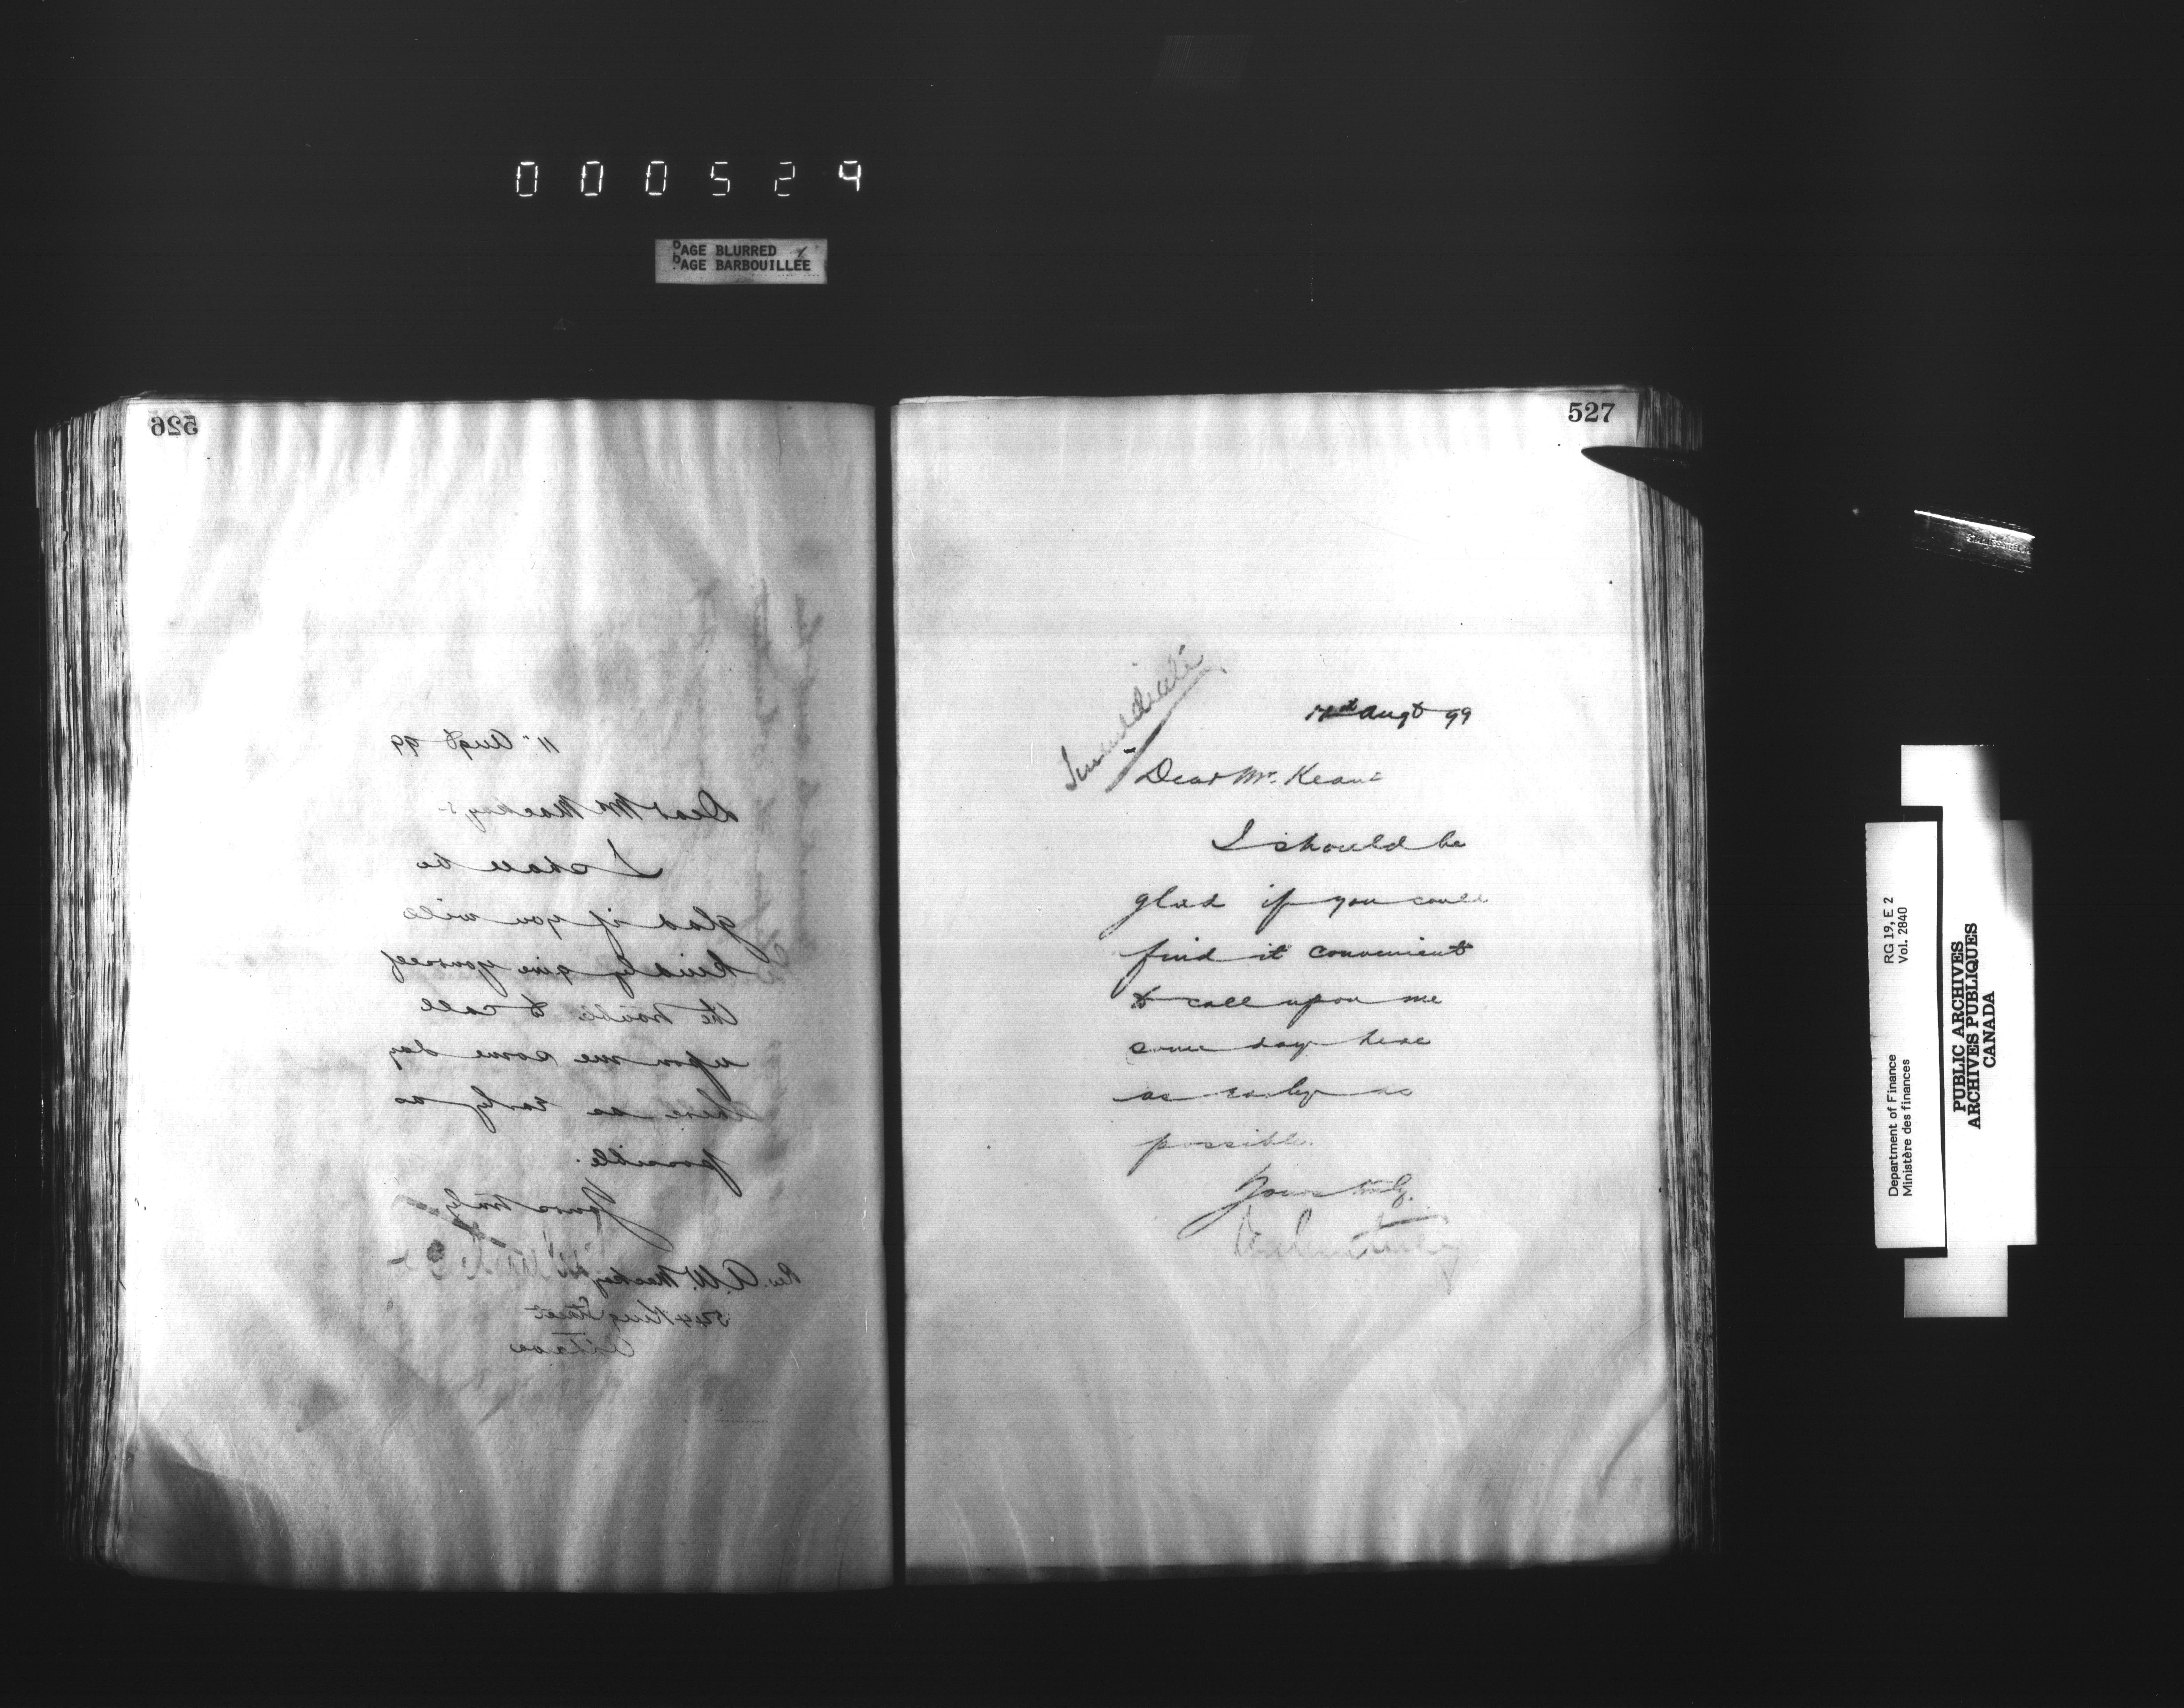 000529
PAGE BLURRED
PAGE BARBOUILLÉE
526
11" Augt 99
Dear Mr Mackay:-
I shall be
glad if you will
kindly give yourself
the trouble to call
upon me some day
here as early as
possible.
Yours truly
Rev. A. W. Mackay
524 King Street
Ottawa
527
Immediate
Augt 99
Dear Mr. Keane
I should be
glad if you could
find it convenient
to call upon me
some day here
as early as
possible.
Yours truly.
RG 19, E 2
Vol. 2840
Department of Finance
Ministère des finances
PUBLIC ARCHIVES
ARCHIVES PUBLIQUES
CANADA